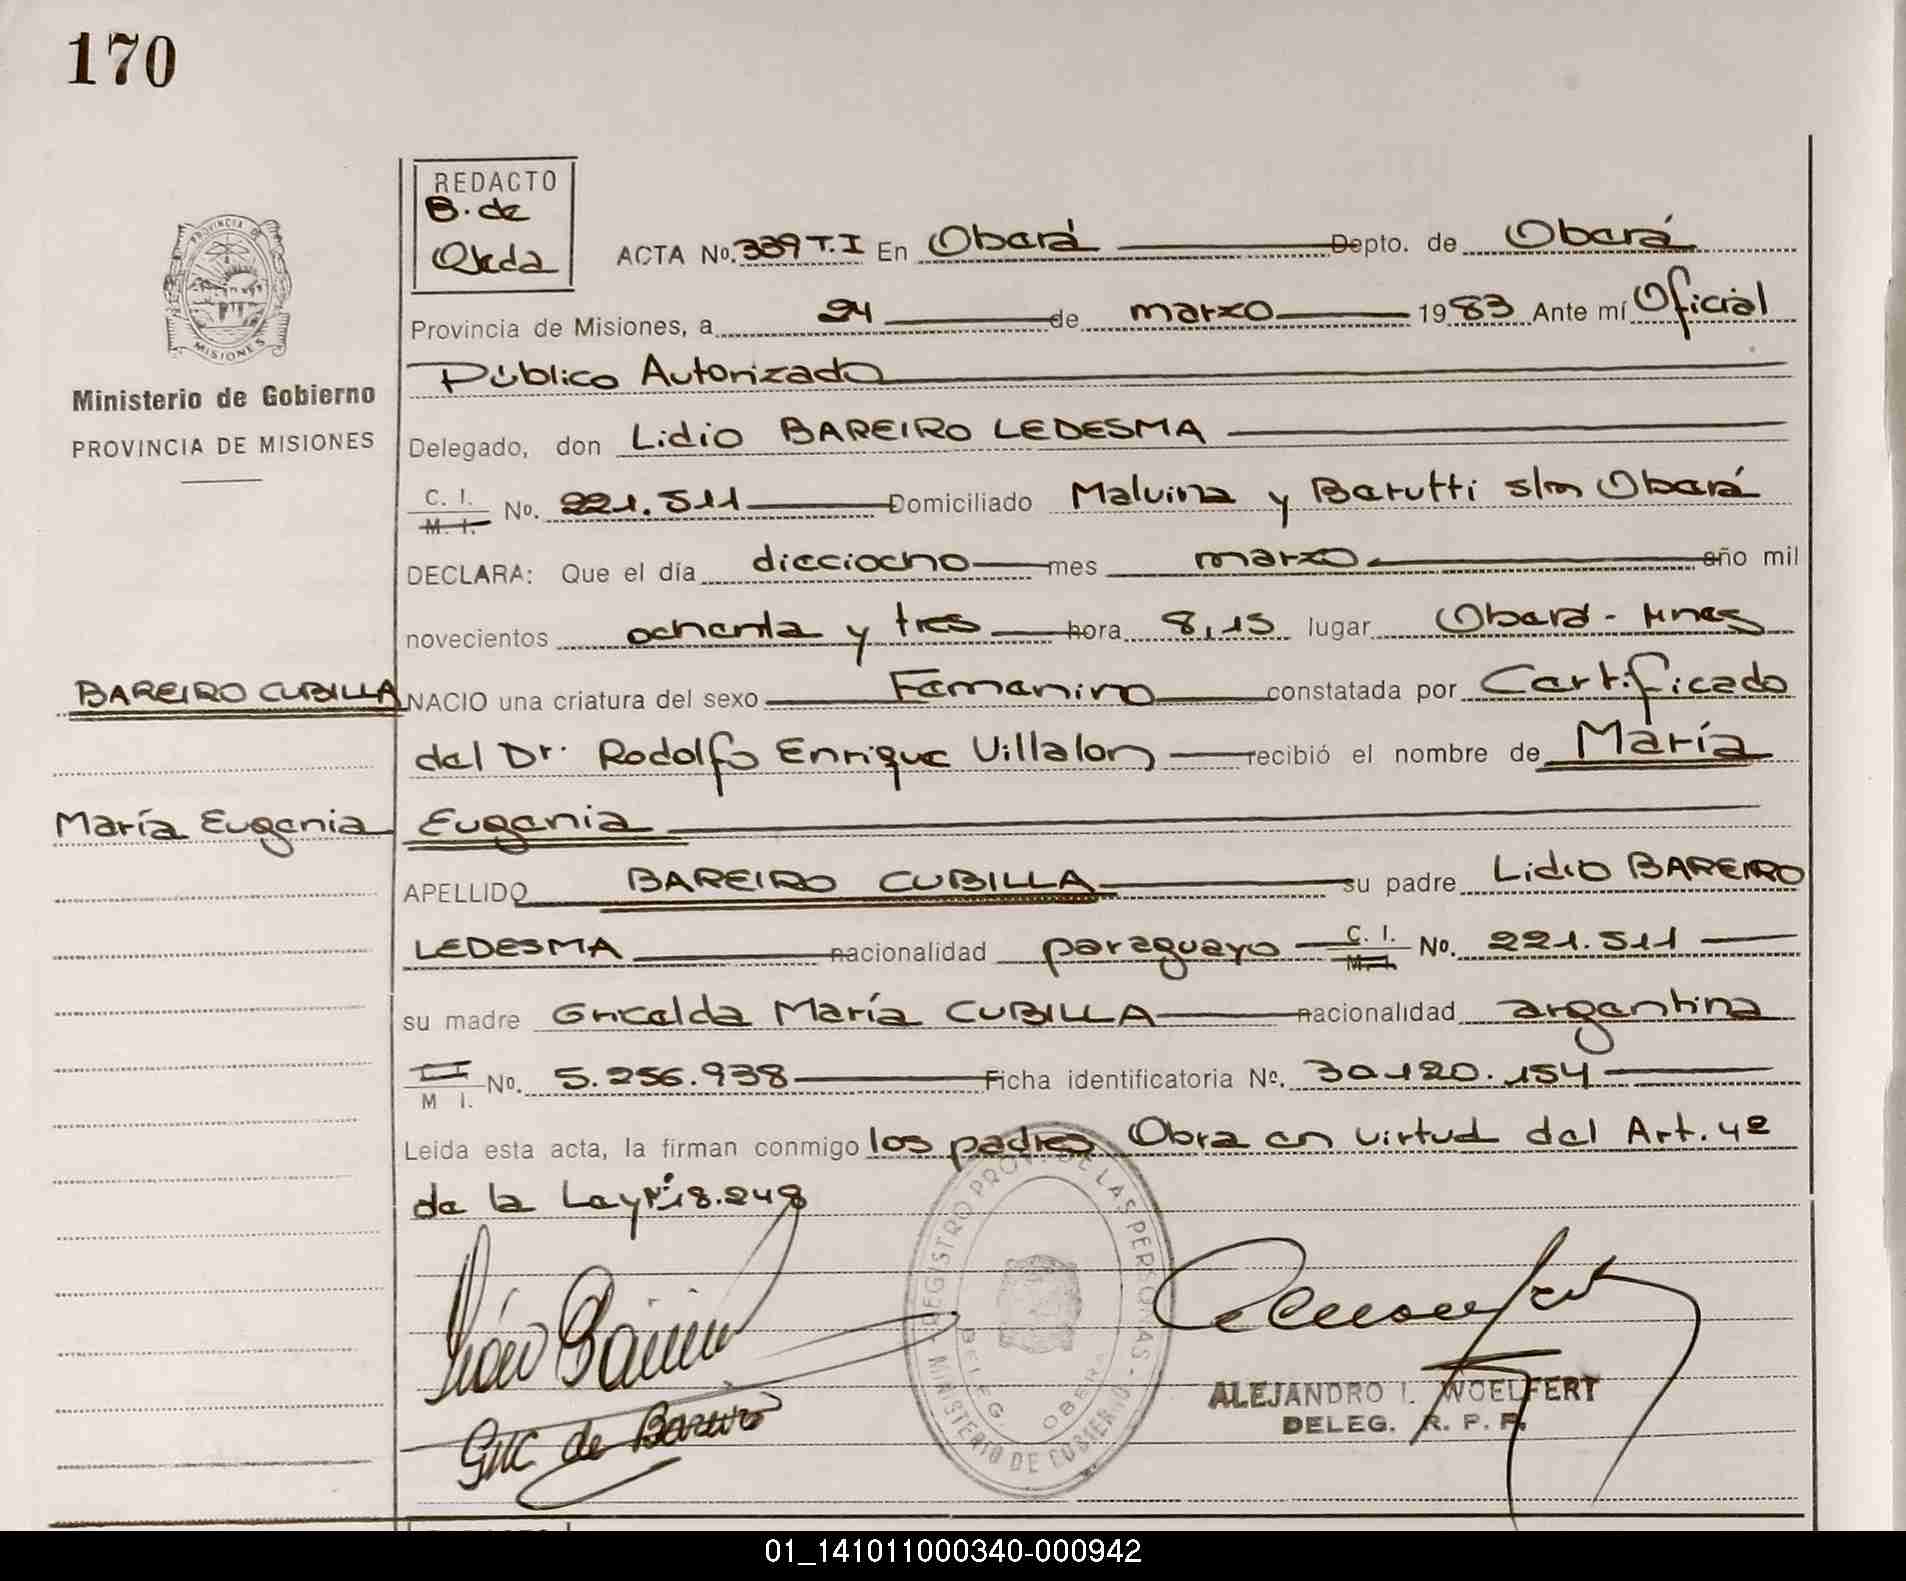 170
REDACTO
B. de
Ojeda
PROVINCIA DE
MISIONES
Ministerio de Gobierno
PROVINCIA DE MISIONES
ACTA No. 339 T.I En Oberá Depto. de Oberá
Provincia de Misiones, a 24 de marzo 1983 Ante mí Oficial
Público Autorizado
Delegado, don Lidio BAREIRO LEDESMA
C. I.
M. I. No. 221.511 Domiciliado Malvina y Barutti s/n Oberá
DECLARA: Que el día dieciocho mes marzo año mil
novecientos ochenta y tres hora 8,15 lugar Oberá - Mnes
BAREIRO CUBILLA NACIO una criatura del sexo Femenino constatada por Certificado
del Dr. Rodolfo Enrique Villalon recibió el nombre de María
María Eugenia Eugenia
APELLIDO BAREIRO CUBILLA su padre Lidio BAREIRO
LEDESMA nacionalidad paraguayo C. I.
M. I. No. 221.511
su madre Gricelda María CUBILLA nacionalidad argentina
M I. No. 5.256.938 Ficha identificatoria No. 30.120.154
Leida esta acta, la firman conmigo los padres Obra en virtud del Art. 4º
de la Ley Nº 18.248
REGISTRO PROV. DE LAS PERSONAS - MINISTERIO DE GOBIERNO -
DELEG. OBERA
GMC de Bareiro
ALEJANDRO I. WOELFERT
DELEG. R. P. P.
01_141011000340-000942